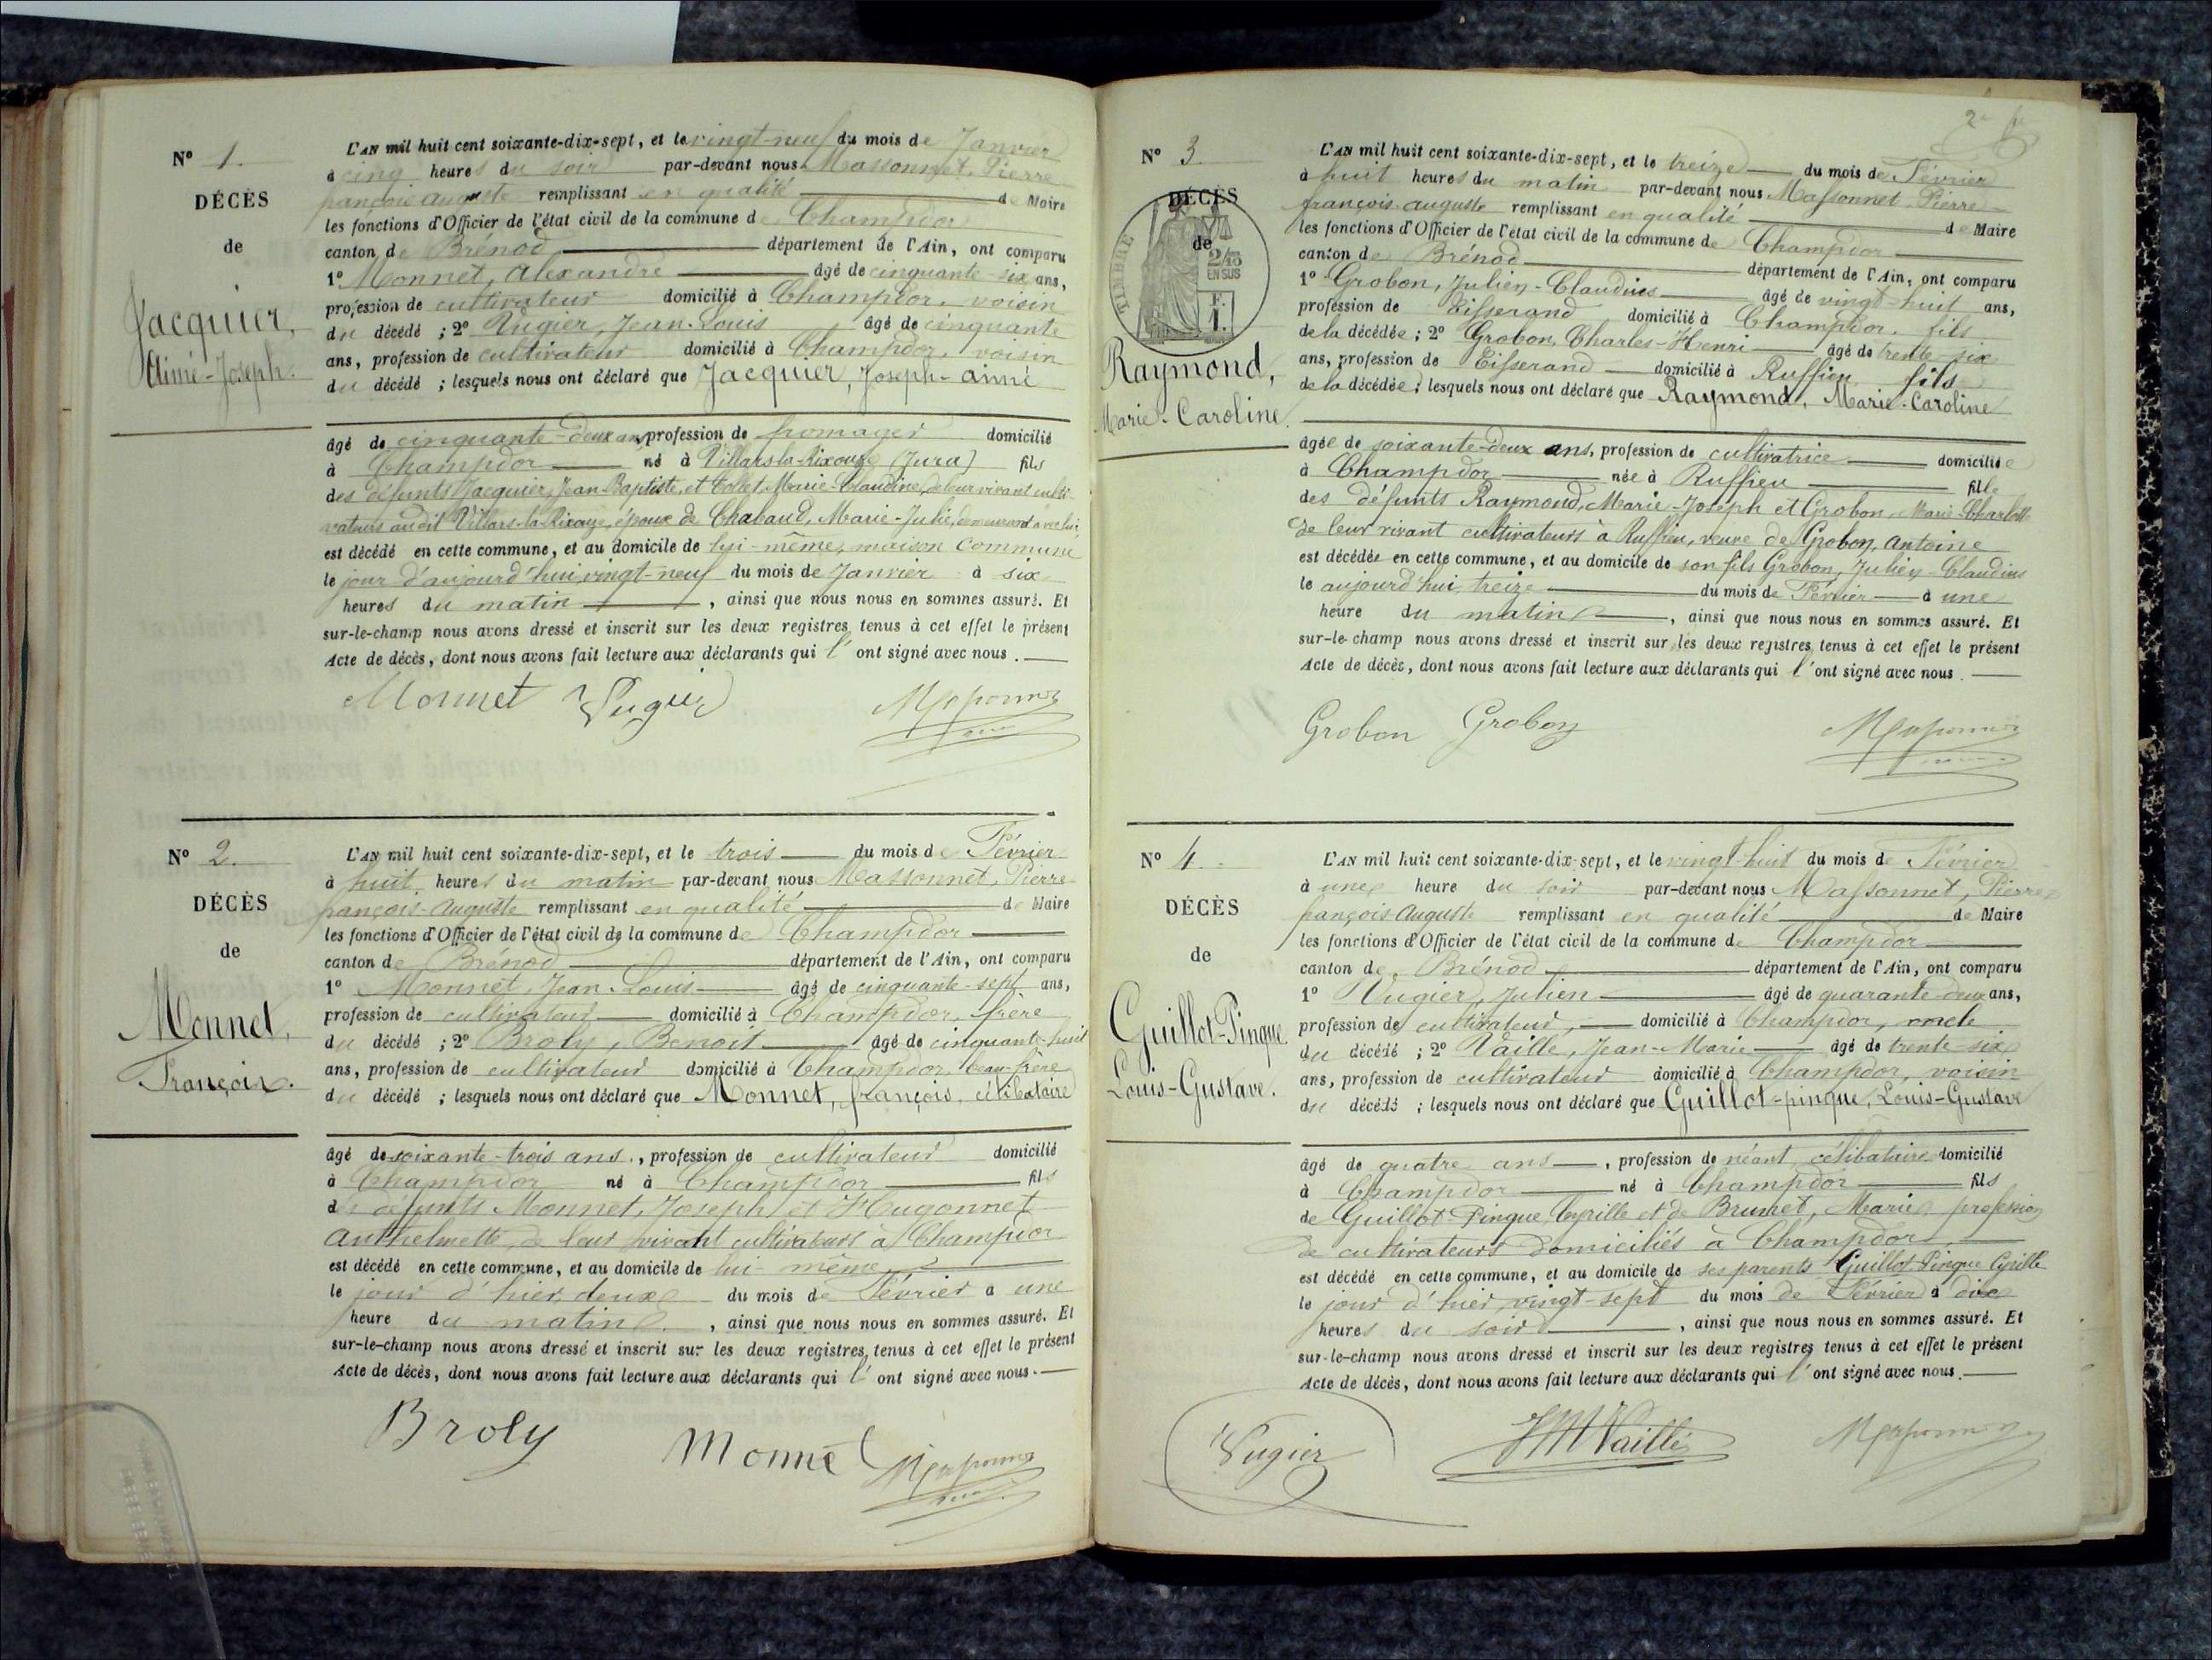 N° 1.
DÉCÈS
de
Jacquier,
Aimé-Joseph.
L'AN mil huit cent soixante-dix-sept, et le vingt-neuf du mois de Janvier
à cinq heures du soir par-devant nous Massonnet, Pierre
françois auguste remplissant en qualité de Maire
les fonctions d'Officier de l'état civil de la commune de Champdor
canton de Brénod département de l'Ain, ont comparu
1° Monnet, Alexandre âgé de cinquante-six ans,
profession de cultivateur domicilié à Champdor, voisin
du décédé ; 2° Vugier, Jean-Louis âgé de cinquante
ans, profession de cultivateur domicilié à Champdor, voisin
du décédé ; lesquels nous ont déclaré que Jacquier, Joseph-aimé
âgé de cinquante-deux ans, profession de fromager domicilié
à Champdor né à Villars-la-Rixouse (Jura) fils
des défunts Jacquier, Jean-Baptiste, et Marie-Claudine, de leur vivant culti-
vateurs audit Villars-la-Rixouse, époux de Chabaud, Marie-Julie, demeurant avec lui,
est décédé en cette commune, et au domicile de lui-même, maison commune
le jour d'aujourd'hui vingt-neuf du mois de Janvier à six
heures du matin, ainsi que nous nous en sommes assuré. Et
sur-le-champ nous avons dressé et inscrit sur les deux registres tenus à cet effet le présent
Acte de décès, dont nous avons fait lecture aux déclarants qui l'ont signé avec nous.
Monnet Vugier
N° 2.
DÉCÈS
de
Monnet,
François.
L'AN mil huit cent soixante-dix-sept, et le trois du mois de Février
à huit heures du matin par-devant nous Massonnet, Pierre
françois-Auguste remplissant en qualité de Maire
les fonctions d'Officier de l'état civil de la commune de Champdor
canton de Brénod département de l'Ain, ont comparu
1° Monnet, Jean-Louis âgé de cinquante-sept ans,
profession de cultivateur domicilié à Champdor, frère
du décédé ; 2° Broly, Benoit âgé de cinquante-huit
ans, profession de cultivateur domicilié à Champdor, beau-frère
du décédé ; lesquels nous ont déclaré que Monnet, françois, célibataire
âgé de soixante-trois ans, profession de cultivateur domicilié
à Champdor né à Champdor fils
de défunts Monnet, Joseph et Hugonnet
Anthelmette, de leur vivant cultivateurs à Champdor
est décédé en cette commune, et au domicile de lui-même
le jour d'hier, deux du mois de Février à une
heure du matin, ainsi que nous nous en sommes assuré. Et
sur-le-champ nous avons dressé et inscrit sur les deux registres tenus à cet effet le présent
Acte de décès, dont nous avons fait lecture aux déclarants qui l'ont signé avec nous.
Broly Monnet
2e
N° 3
DÉCÈS
de
TIMBRE
2/10
EN SUS
F.
1.
Raymond,
Marie-Caroline.
L'AN mil huit cent soixante-dix-sept, et le treize du mois de Février
à huit heures du matin par-devant nous Massonnet Pierre
françois-auguste remplissant en qualité de Maire
les fonctions d'Officier de l'état civil de la commune de Champdor
canton de Brénod département de l'Ain, ont comparu
1° Grobon, Julien-Claudius âgé de vingt-huit ans,
profession de Tisserand domicilié à Champdor, fils
de la décédée ; 2° Grobon, Charles-Henri âgé de trente-six
ans, profession de Tisserand domicilié à Ruffieu fils
de la décédée ; lesquels nous ont déclaré que Raymond, Marie-Caroline
âgée de soixante-deux ans, profession de cultivatrice domiciliée
à Champdor née à Ruffieu fille
des défunts Raymond, Marie-Joseph et Grobon, Marie-Charlotte
de leur vivant cultivateurs à Ruffieu, veuve de Grobon, Antoine
est décédée en cette commune, et au domicile de son fils Grobon, Julien-Claudius
le aujourd'hui treize du mois de Février à une
heure du matin, ainsi que nous nous en sommes assuré. Et
sur-le-champ nous avons dressé et inscrit sur les deux registres tenus à cet effet le présent
Acte de décès, dont nous avons fait lecture aux déclarants qui l'ont signé avec nous.
Grobon Grobon
N° 4.
DÉCÈS
de
Guillot-Pingue
Louis-Gustave.
L'AN mil huit cent soixante-dix-sept, et le vingt-huit du mois de Février
à une heure du soir par-devant nous Massonnet, Pierre
françois Auguste remplissant en qualité de Maire
les fonctions d'Officier de l'état civil de la commune de Champdor
canton de Brénod département de l'Ain, ont comparu
1° Vugier, Julien âgé de quarante-deux ans,
profession de cultivateur, domicilié à Champdor, oncle
du décédé ; 2° Vaille, Jean-Marie âgé de trente-six
ans, profession de cultivateur domicilié à Champdor, voisin
du décédé ; lesquels nous ont déclaré que Guillot-pingue, Louis-Gustave
âgé de quatre ans, profession de néant célibataire domicilié
à Champdor né à Champdor fils
de Guillot-Pingue, Cyrille et de Brunet, Marie profession
de cultivateurs domiciliés à Champdor,
est décédé en cette commune, et au domicile de ses parents Guillot Pingue Cyrille
le jour d'hier, vingt-sept du mois de Février à dix
heures du soir, ainsi que nous nous en sommes assuré. Et
sur-le-champ nous avons dressé et inscrit sur les deux registres tenus à cet effet le présent
Acte de décès, dont nous avons fait lecture aux déclarants qui l'ont signé avec nous.
Vugier JM Vaille